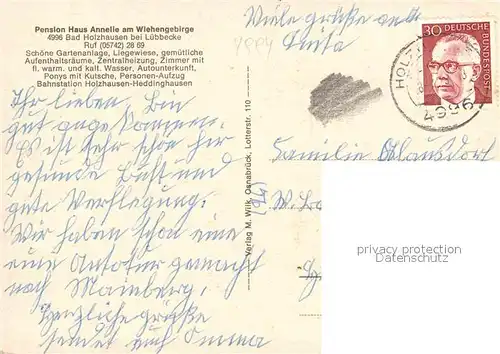 Pension Haus Annelie am Wiehengebirge
4996 Bad Holzhausen bei Lübbecke
Ruf (05742) 28 69
Schöne Gartenanlage, Liegewiese, gemütliche
Aufenthaltsräume, Zentralheizung, Zimmer mit
fl. warm. und kalt. Wasser, Autounterkunft,
Ponys mit Kutsche, Personen-Aufzug
Bahnstation Holzhausen-Heddinghausen
Ihr lieben, bin
gut angekommen.
Es ist sehr schön hier
gesunde Luft und
gute Verpflegung.
Wir haben schon eine
eine Autotour gemacht
nach
herzliche Grüße
sendet euch Omma
Viele grüße an
Anita
Verlag M. Wilk, Osnabrück, Lotterstr. 110
30
DEUTSCHE
BUNDESPOST
HOLZ
4996
Familie
privacy protection
Datenschutz